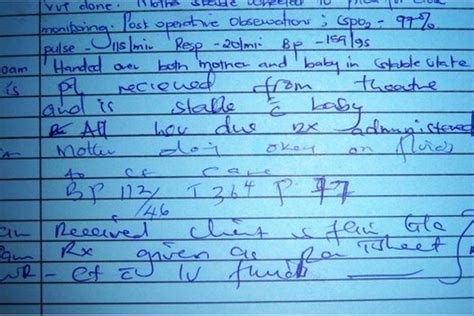 vvt done. Mother stable
monitoring. Post operative Observations; Spo2 - 97%
pulse - 115/min Resp - 20/min BP - 159/95
Handed over both mother and baby in stable state
pt recieved from theatre
and is stable c baby
All her due Rx administered
Mother doing okey on fluids
care
BP 112/46 T 364 P 77
Received client is fair,
Rx given as Per Tsheet
- ct IV fluids